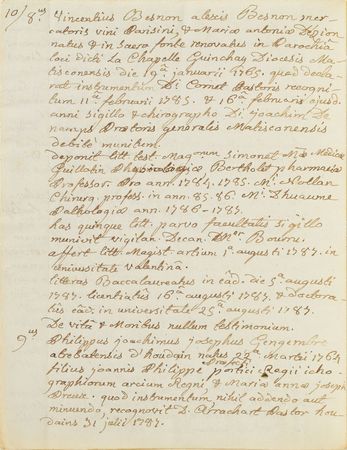 10/ 8.us Vincentius Besnon alexis Besnon mer-
catoris vini Parisini, & Mariæ antoniæ
natus & in sacro fonte renovatus in Parochiâ
loci dicti La Chapelle Guinchay Diocesis Ma-
tisconensis die 19.a januarii 1765. quod decla-
rat instrumentum D.i Cornet Pastoris recogni-
tum 11.a februarii 1785. & 16.a februarii ejusd.
anni sigillo & chirographo D.i joachim De
namps Prætoris generalis Matisconensis
debite munitum.
deponit litt. test. Mag.rum Simonet M.æ Medicæ
Guillotin Physiologiæ Bertholet pharmaciæ
Professor. Pro ann. 1784. 1785. M.i Nollan
Chirurg. profess. in ann. 85. 86. M.i Dhuaume
Pathologiæ ann. 1786-1787.
has quinque litt. parvo facultatis sigillo
munivit vigilan. Decan. M.r Bourru.
affert litt. Magist. artium 1.a augusti 1787. in
universitate valentinâ.
litteras Baccalaureatus in eâd. die 5.a augusti
1787. licentiatûs 16.a augusti 1787. & doctora-
tûs eâd. in universitate 25.a augusti 1787.
De vitâ & Moribus nullum testimonium.
9.us Philippus joachimus josephus Gengembre
atrebatensis d'houdain natus 22.a Martii 1764
filius joannis Philippe portici Regii icho-
graphiorum arcium Regni, & Mariæ annæ joseph
Dreuse. quod instrumentum nihil addendo aut
minuendo, recognovit D. Arrachart Pastor hou-
dains 31 julii 1787.